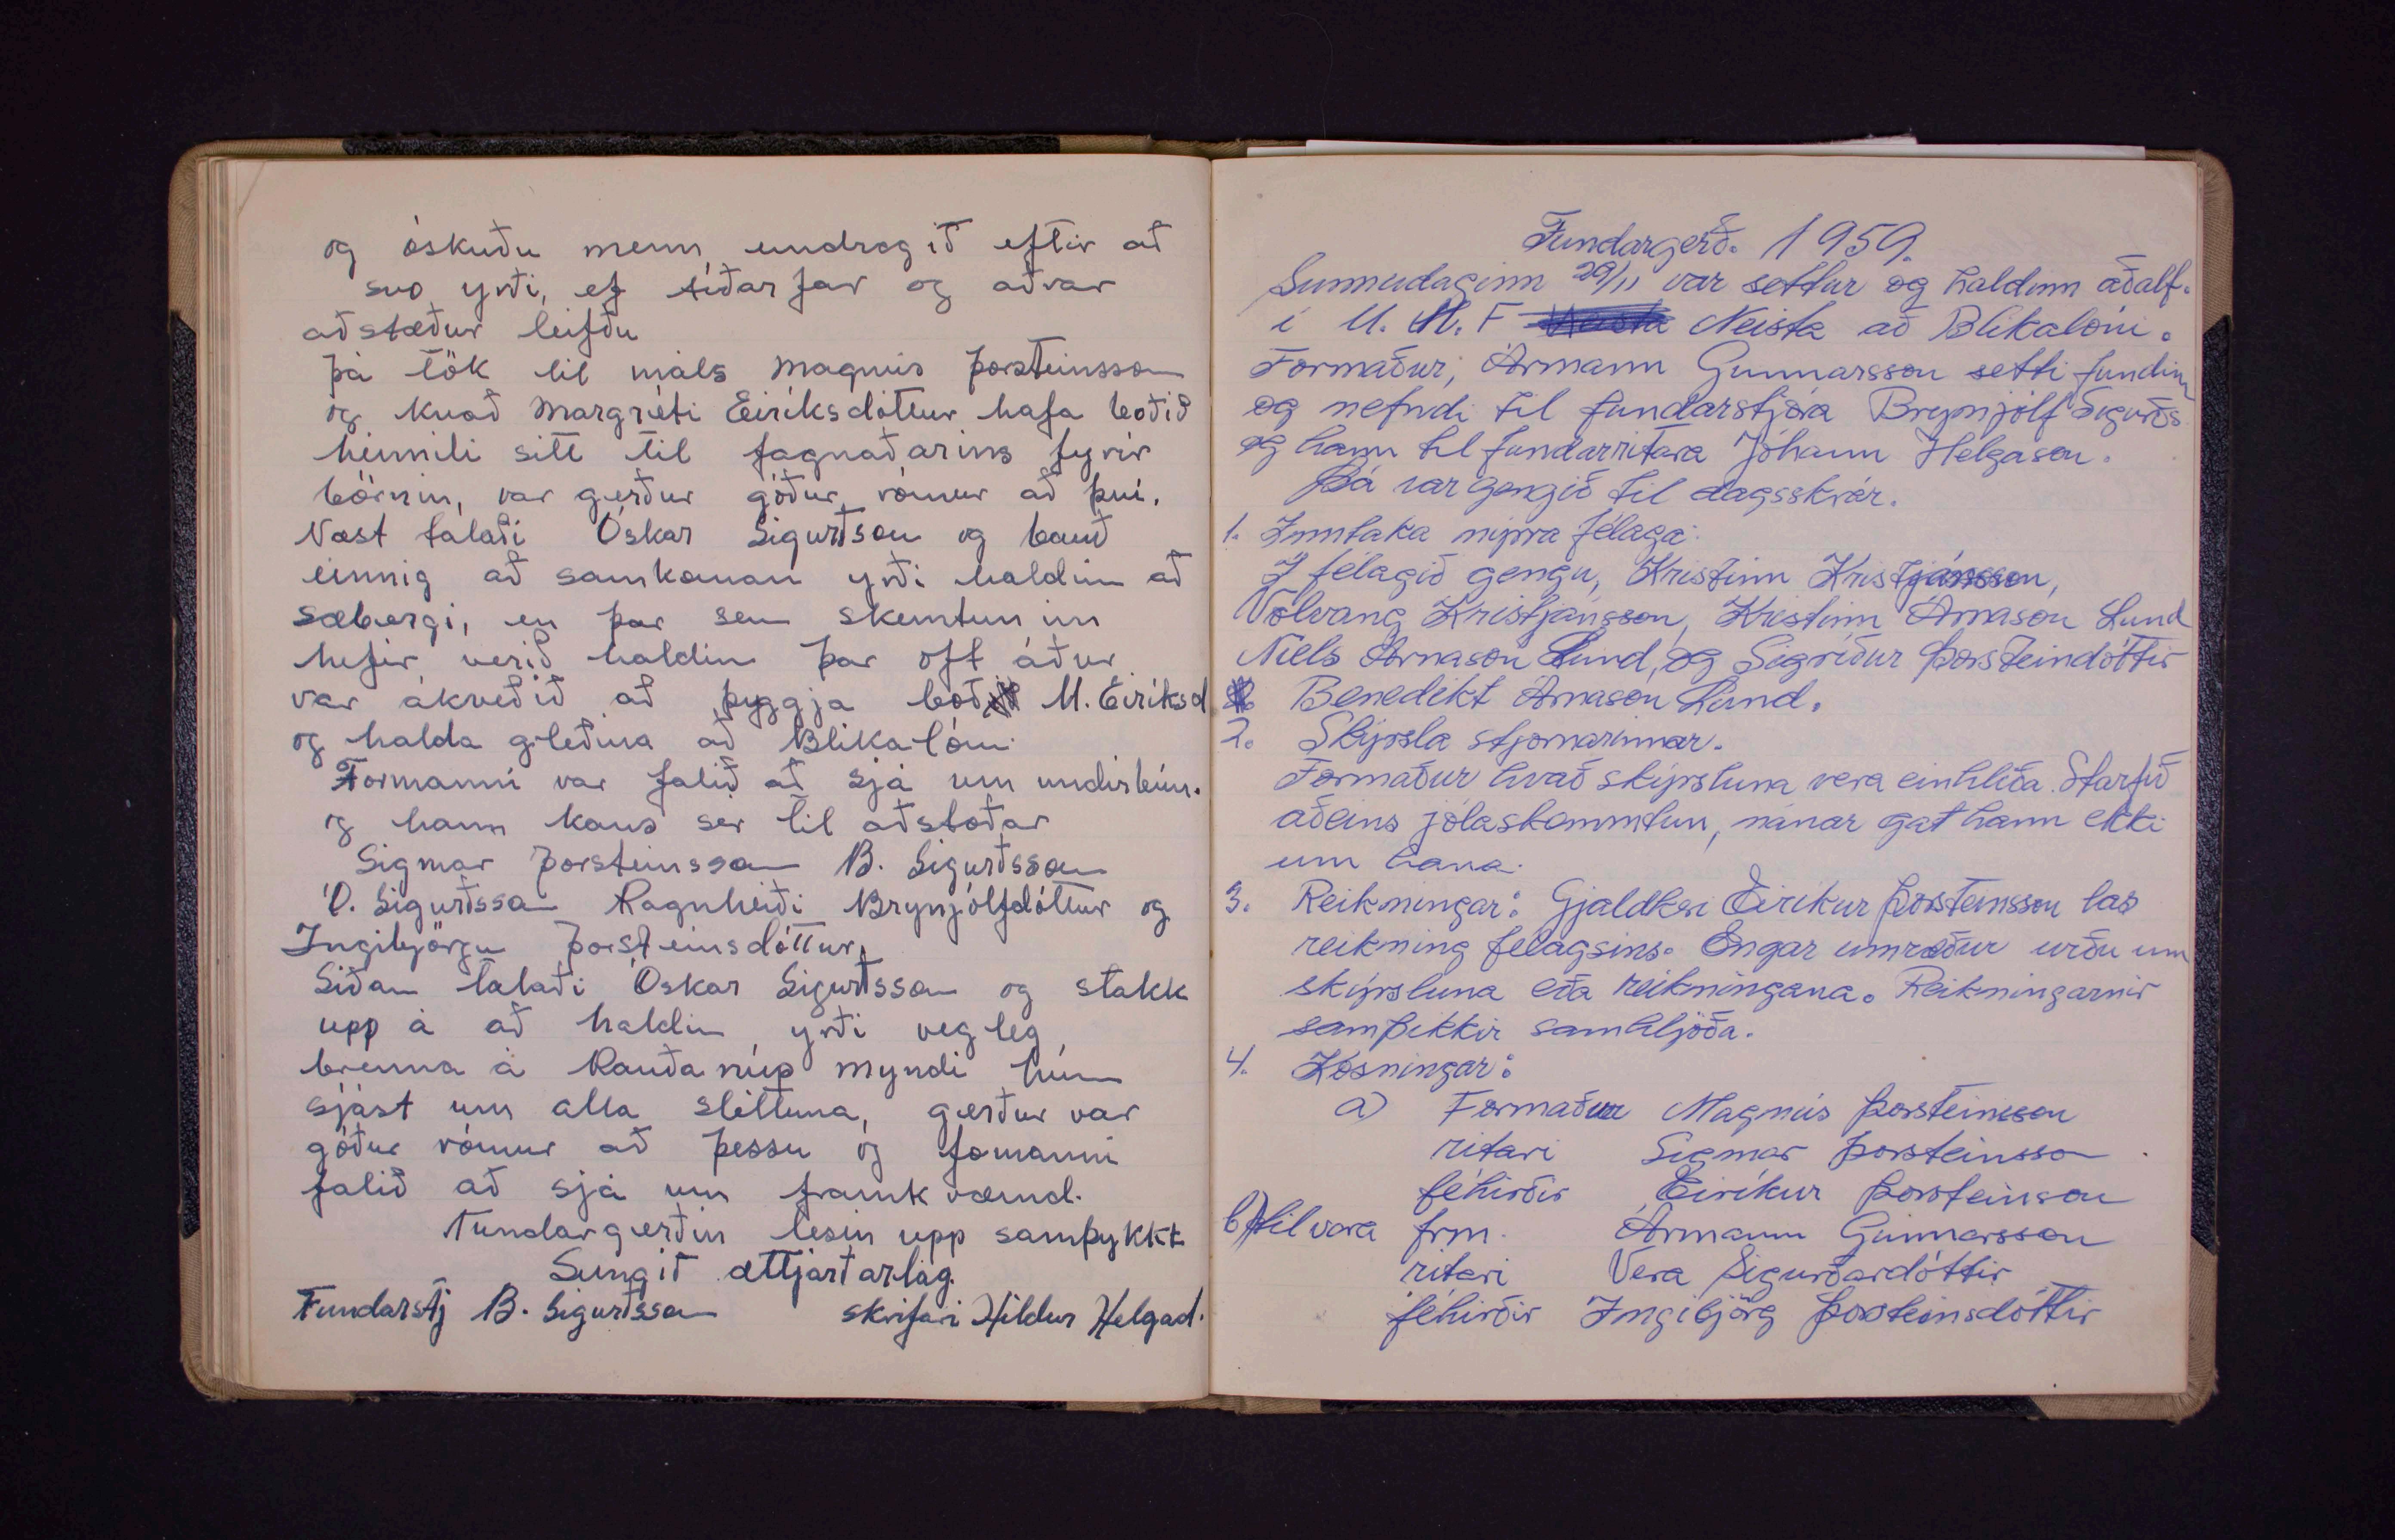 og óskuðu menn eindregið eftir að
svo yrði, ef tíðarfar og aðrar
aðstæður leifðu
þá tók til máls Magnús Þorsteinsson
og kvað Margréti Eiríksdóttur hafa boðið
heimili sitt til fagnaðarins fyrir
börnin, var gerður góður rómur að því.
Næst talaði Óskar Sigurðsson og bauð
einnig að samkoman yrði haldin að
sæbergi, en þar sem skemtunin
hefir verið haldin þar oft áður
var ákveðið að þyggja boð M. Eiríksd
og halda gleðina að Blikalóni.
Formanni var falið að sjá um undirbún.
og hann kaus sér til aðstoðar
Sigmar Þorsteinsson B. Sigurðsson
Ó. Sigurðsson Ragnheiði Brynjólfdóttur og
Ingibjörgu Þorsteinsdóttur.
Síðan talaði Óskar Sigurðsson og stakk
upp á að haldin yrði vegleg
brenna á Rauðanúp myndi hún
sjást um alla sléttuna, gerður var
góður rómur að þessu og formanni
falið að sjá um framkvæmd.
Fundargerðin lesin upp samþykkt
Sungið ættjarðarlag.
Fundarstj B. Sigurðsson skrifari Hildur Helgad.
Fundargerð. 1959.
Sunnudaginn 29/11 var settur og haldinn aðalf.
í U. M. F Neista að Blikalóni.
Formaður, Ármann Gunnarsson setti fundinn
og nefndi til fundarstjóra Brynjólf Sigurðs
og hann til fundarritara Jóhann Helgason.
Þá var gengið til dagsskrár.
1. Inntaka nýrra félaga.
Í félagið gengu, Kristinn Kristjánsson,
Volvang Kristjánsson, Kristinn Árnason Lund
Níels Árnason Lund, og Sigríður Þorsteindóttir
Benedikt Árnason Lund.
2. Skýrsla stjornarinnar.
Formaður kvað skýrsluna vera einhliða. Starfið
aðeins jólaskemmtun, nánar gat hann ekki
um hana.
3. Reikningar: Gjaldkeri Eiríkur Þorsteinsson las
reikning félagsins. Engar umræður urðu um
skýrsluna eða reikningana. Reikningarnir
samþikkir samhljóða.
4. Kosningar:
a) Formaður Magnús Þorsteinsson
ritari Sigmar Þorsteinsson
féhirðir Eiríkur Þorsteinson
b) til vara frm. Ármann Gunnarsson
ritari Vera Sigurðardóttir
féhirðir Ingibjörg Þorsteinsdóttir